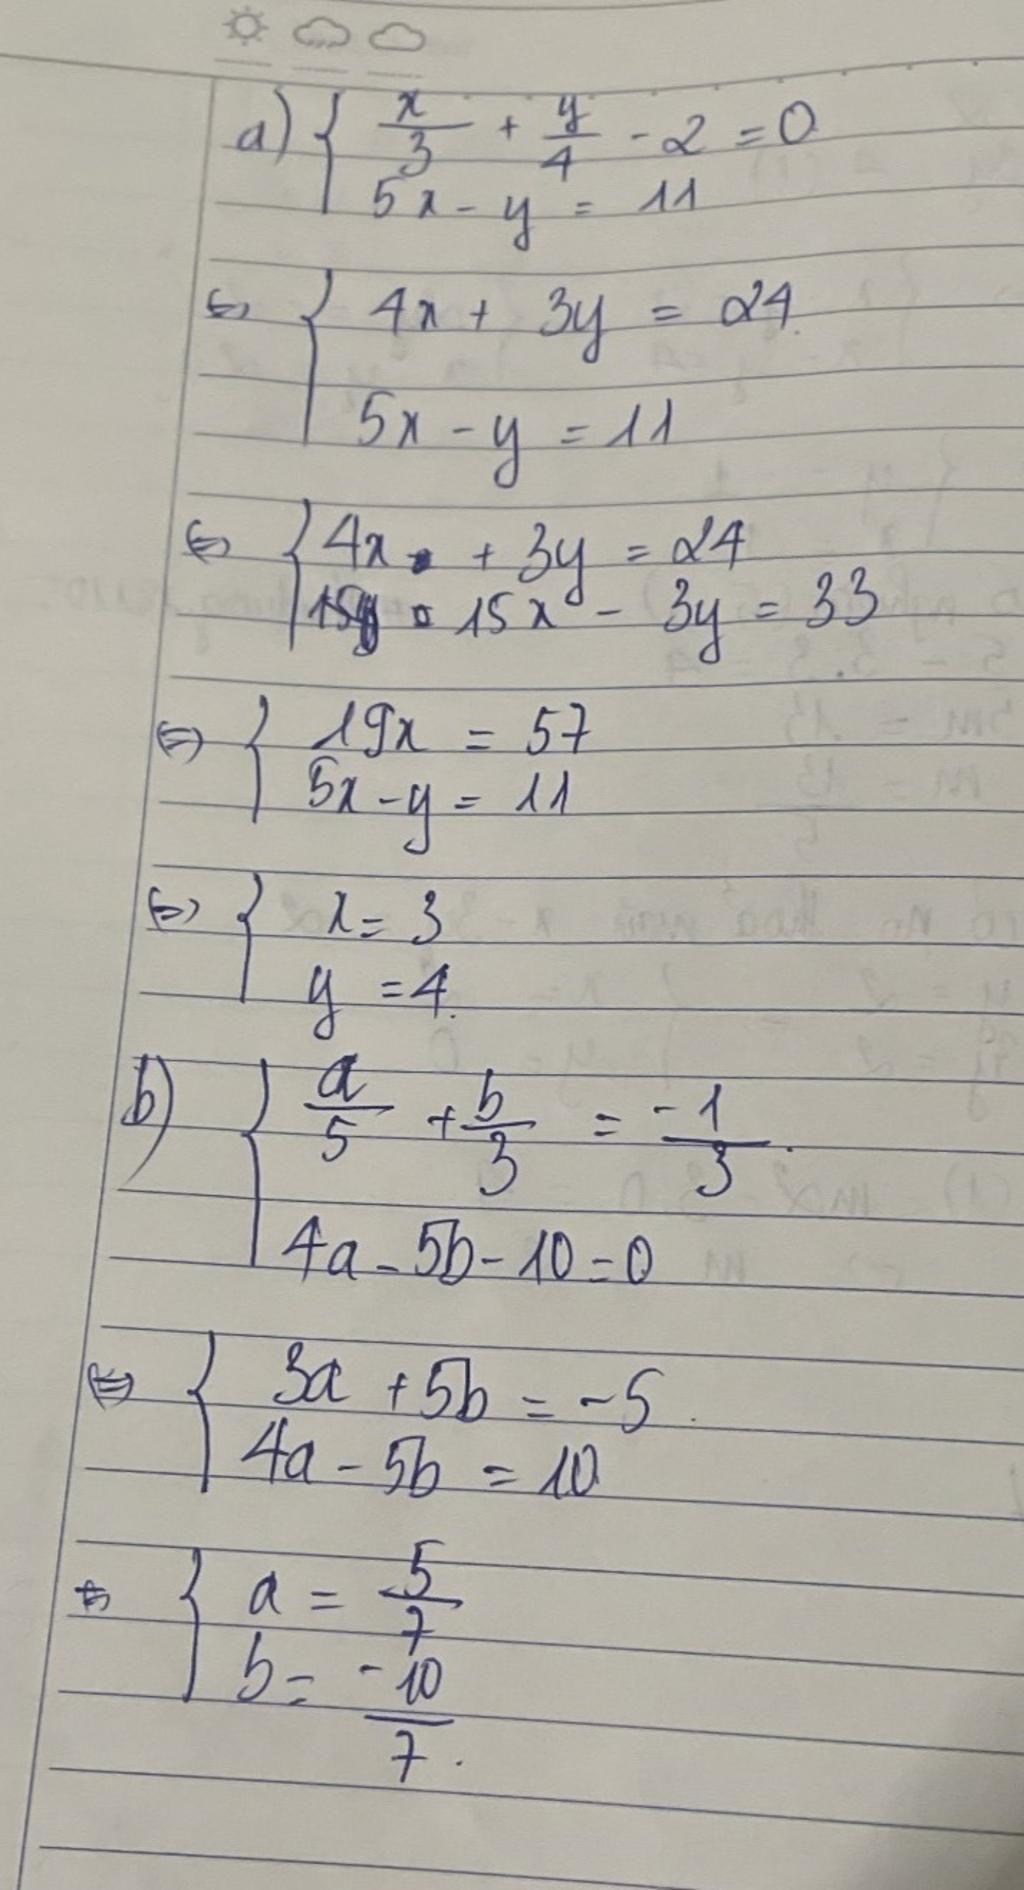 a) { x/3 + y/4 - 2 = 0
5x - y = 11
⇔ { 4x + 3y = 24
5x - y = 11
⇔ { 4x + 3y = 24
15x - 3y = 33
⇔ { 19x = 57
5x - y = 11
⇔ { x = 3
y = 4
b) { a/5 + b/3 = -1/3
4a - 5b - 10 = 0
⇔ { 3a + 5b = -5
4a - 5b = 10
⇔ { a = 5/7
b = -10/7